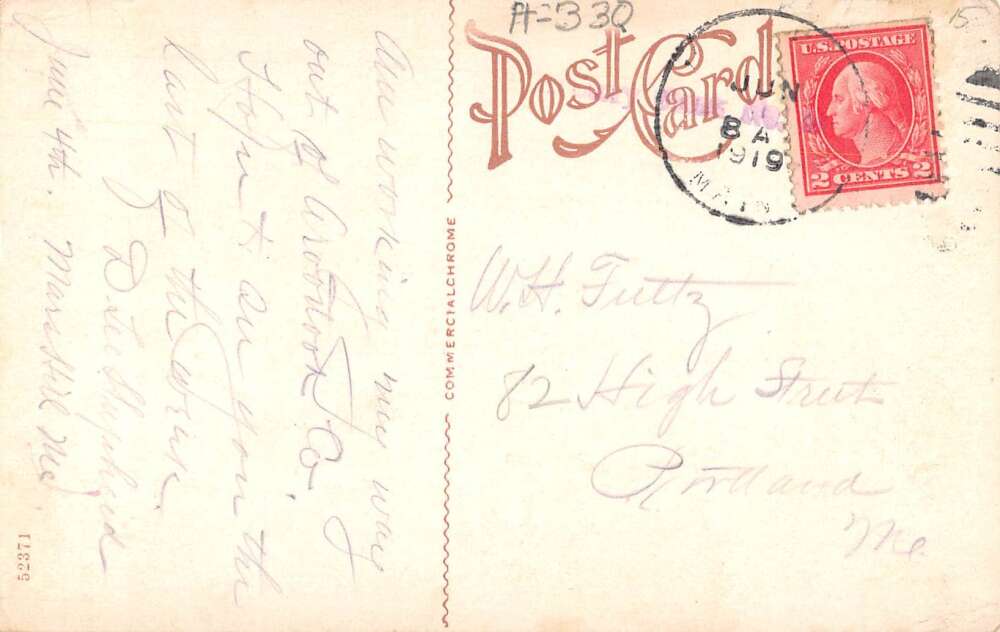 A-330
15
Post Card
U.S. POSTAGE
2 CENTS 2
JUN
8 A
1919
MAIN
COMMERCIALCHROME
52371
Am working my way
out of Aroostook Co.
Hope to see you the
last of the week.
D. Lee Shepherd
June 4th. Mars Hill Me.
W. H. Tuttz
82 High Street
Portland
Me.